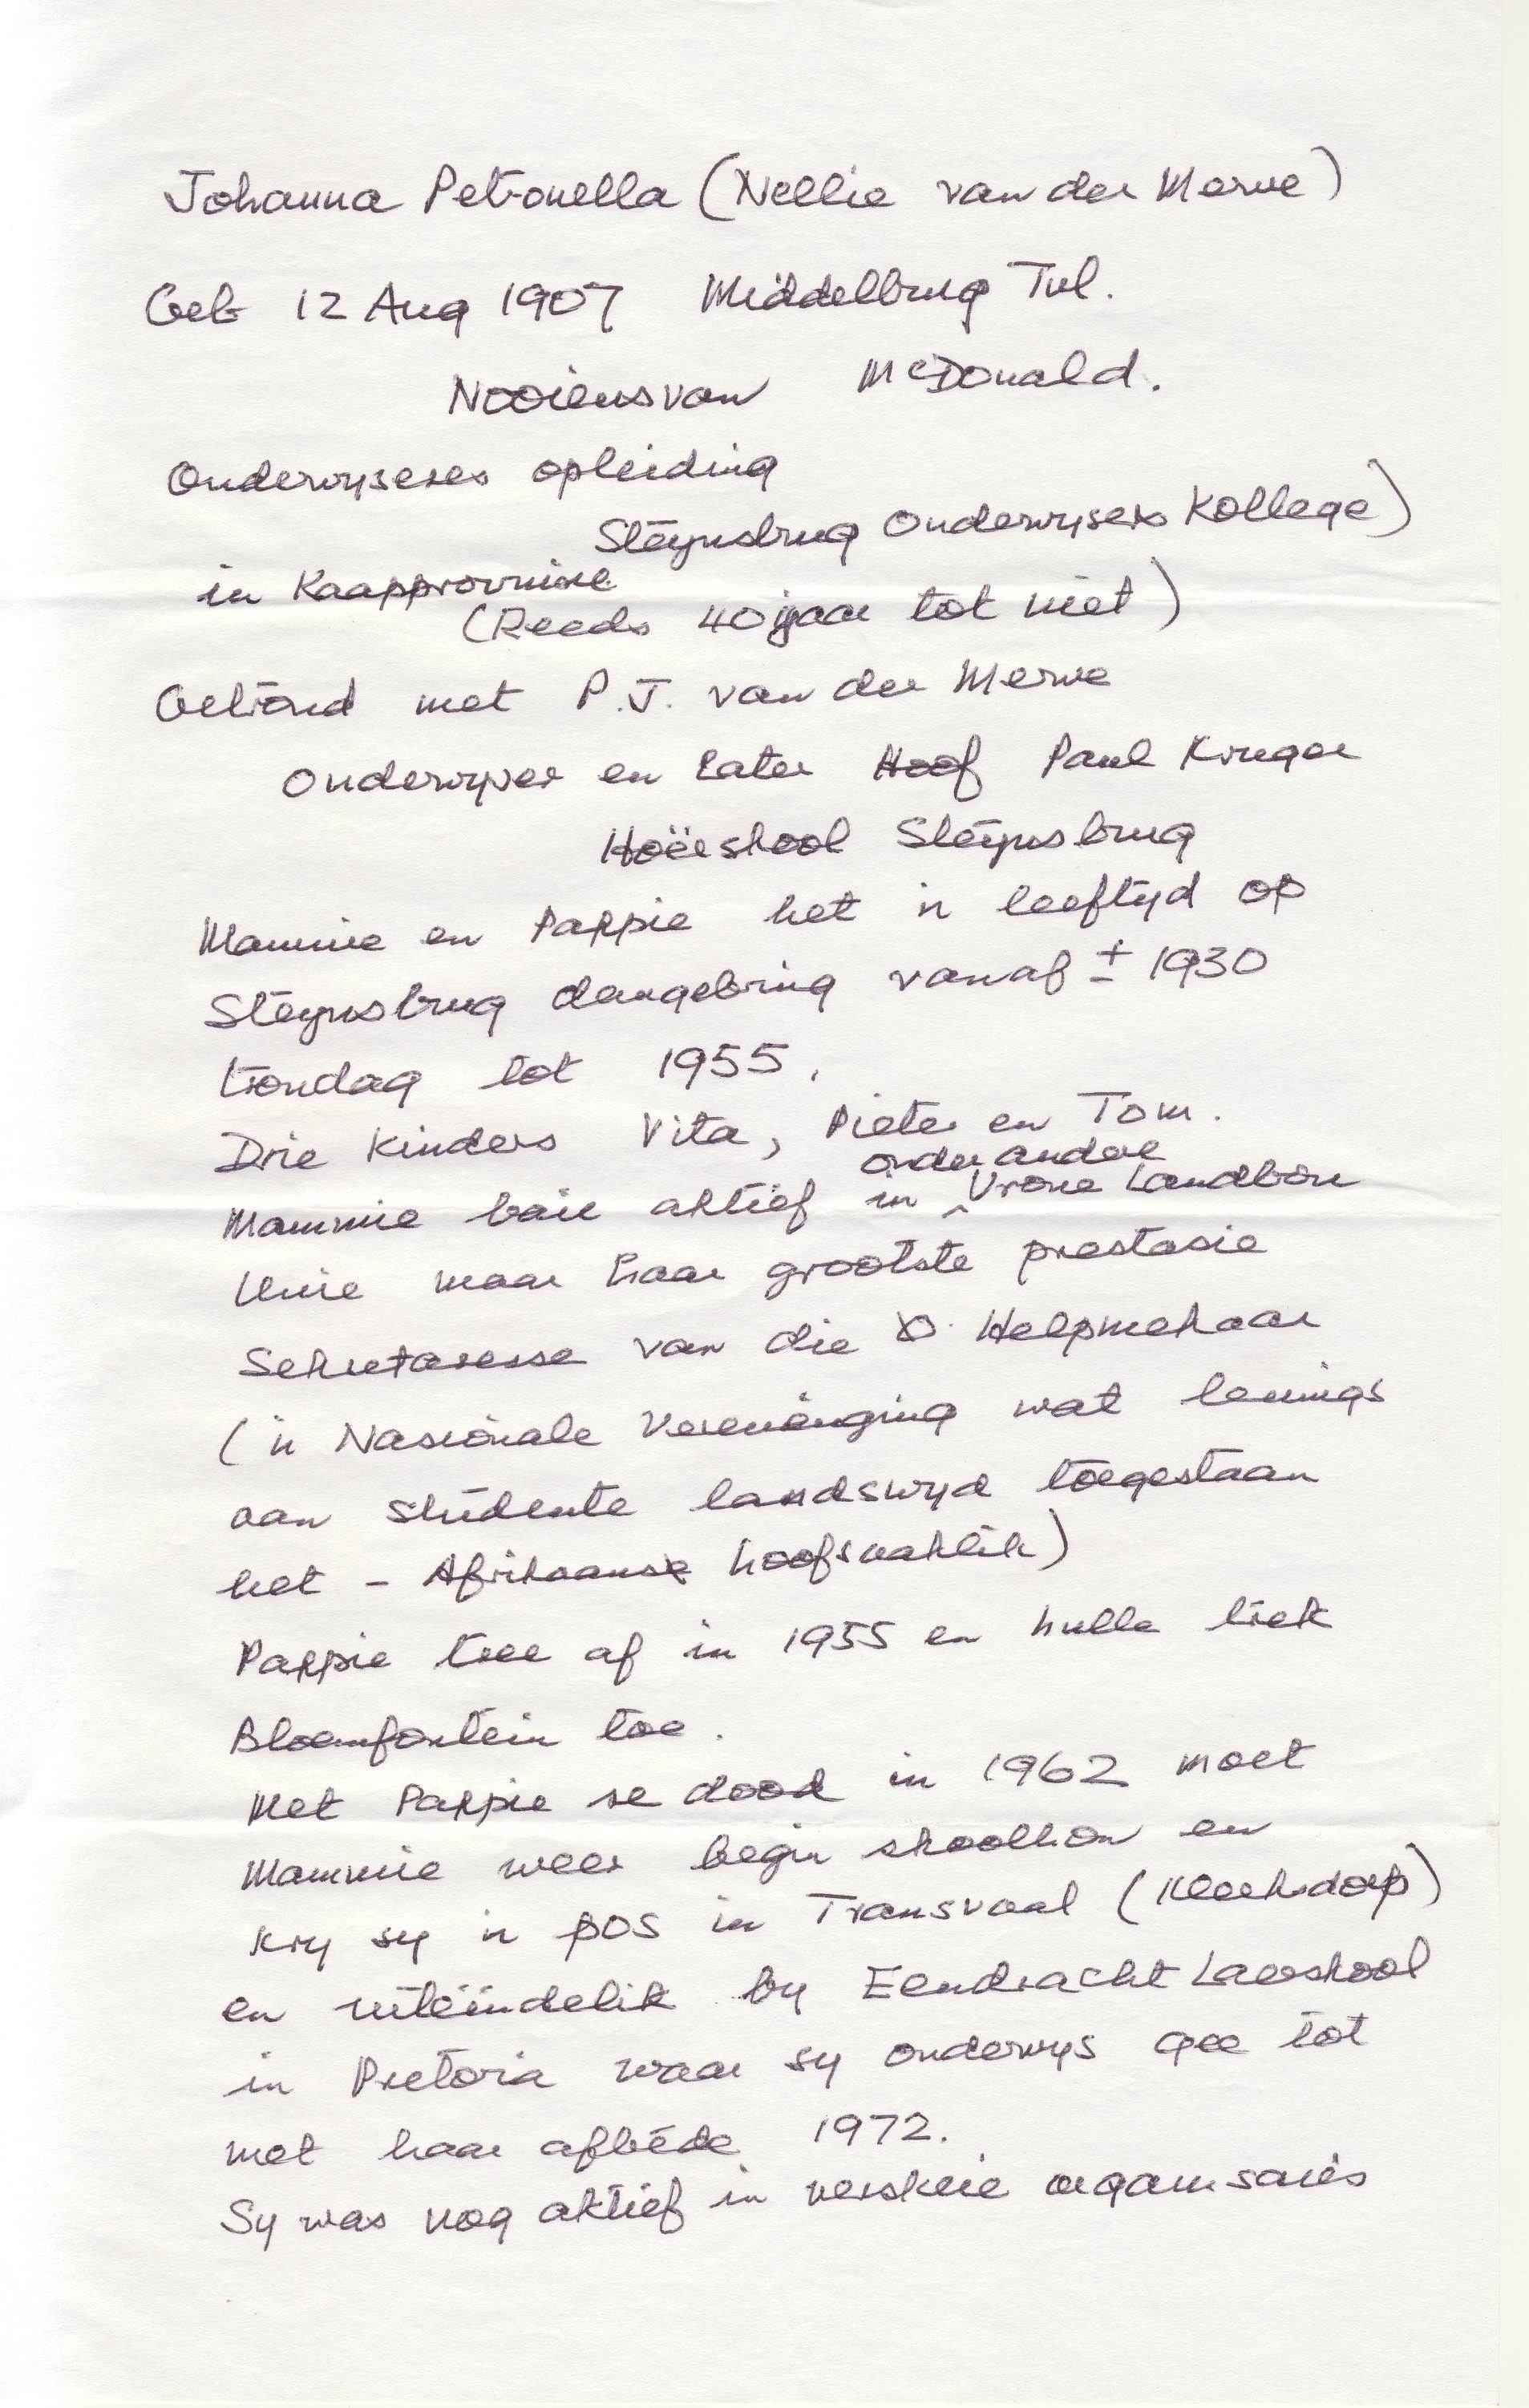 Johanna Petronella (Nellie van der Merwe)
Geb 12 Aug 1907 Middelburg Tvl.
Nooiensvan McDonald.
Onderwyseres opleiding
Steynsburg Onderwysers Kollege)
in Kaapprovinsie
(Reeds 40 jaar tot niet)
Getroud met P.J. van der Merwe
Onderwyser en later Hoof Paul Kruger
Hoërskool Steynsburg
Mammie en Pappie het 'n leeftyd op
Steynsburg deurgebring vanaf ± 1930
troudag tot 1955.
Drie kinders Vita, Pieter en Tom.
onder andere
Mammie baie aktief in ^ Vroue Landbou
Unie maar haar grootste prestasie
Sekretaresse van die Helpmekaar
('n Nasionale Vereniging wat lenings
aan studente landswyd toegestaan
het - Afrikaanse hoofsaaklik)
Pappie tree af in 1955 en hulle trek
Bloemfontein toe.
Met Pappie se dood in 1962 moet
Mammie weer begin skoolhou en
kry sy 'n pos in Transvaal (Klerksdorp)
en uiteindelik by Eendracht Laerskool
in Pretoria waar sy onderwys gee tot
met haar aftrede 1972.
Sy was nog aktief in verskeie organisasies